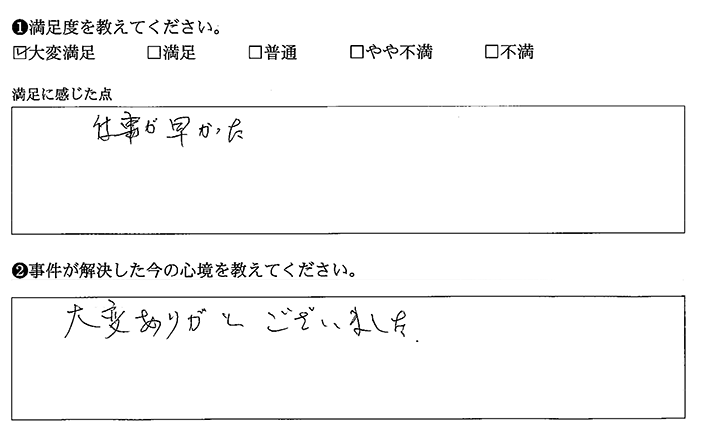 ❶満足度を教えてください。
☑大変満足 □満足 □普通 □やや不満 □不満
満足に感じた点
仕事が早かった
❷事件が解決した今の心境を教えてください。
大変ありがとございました.